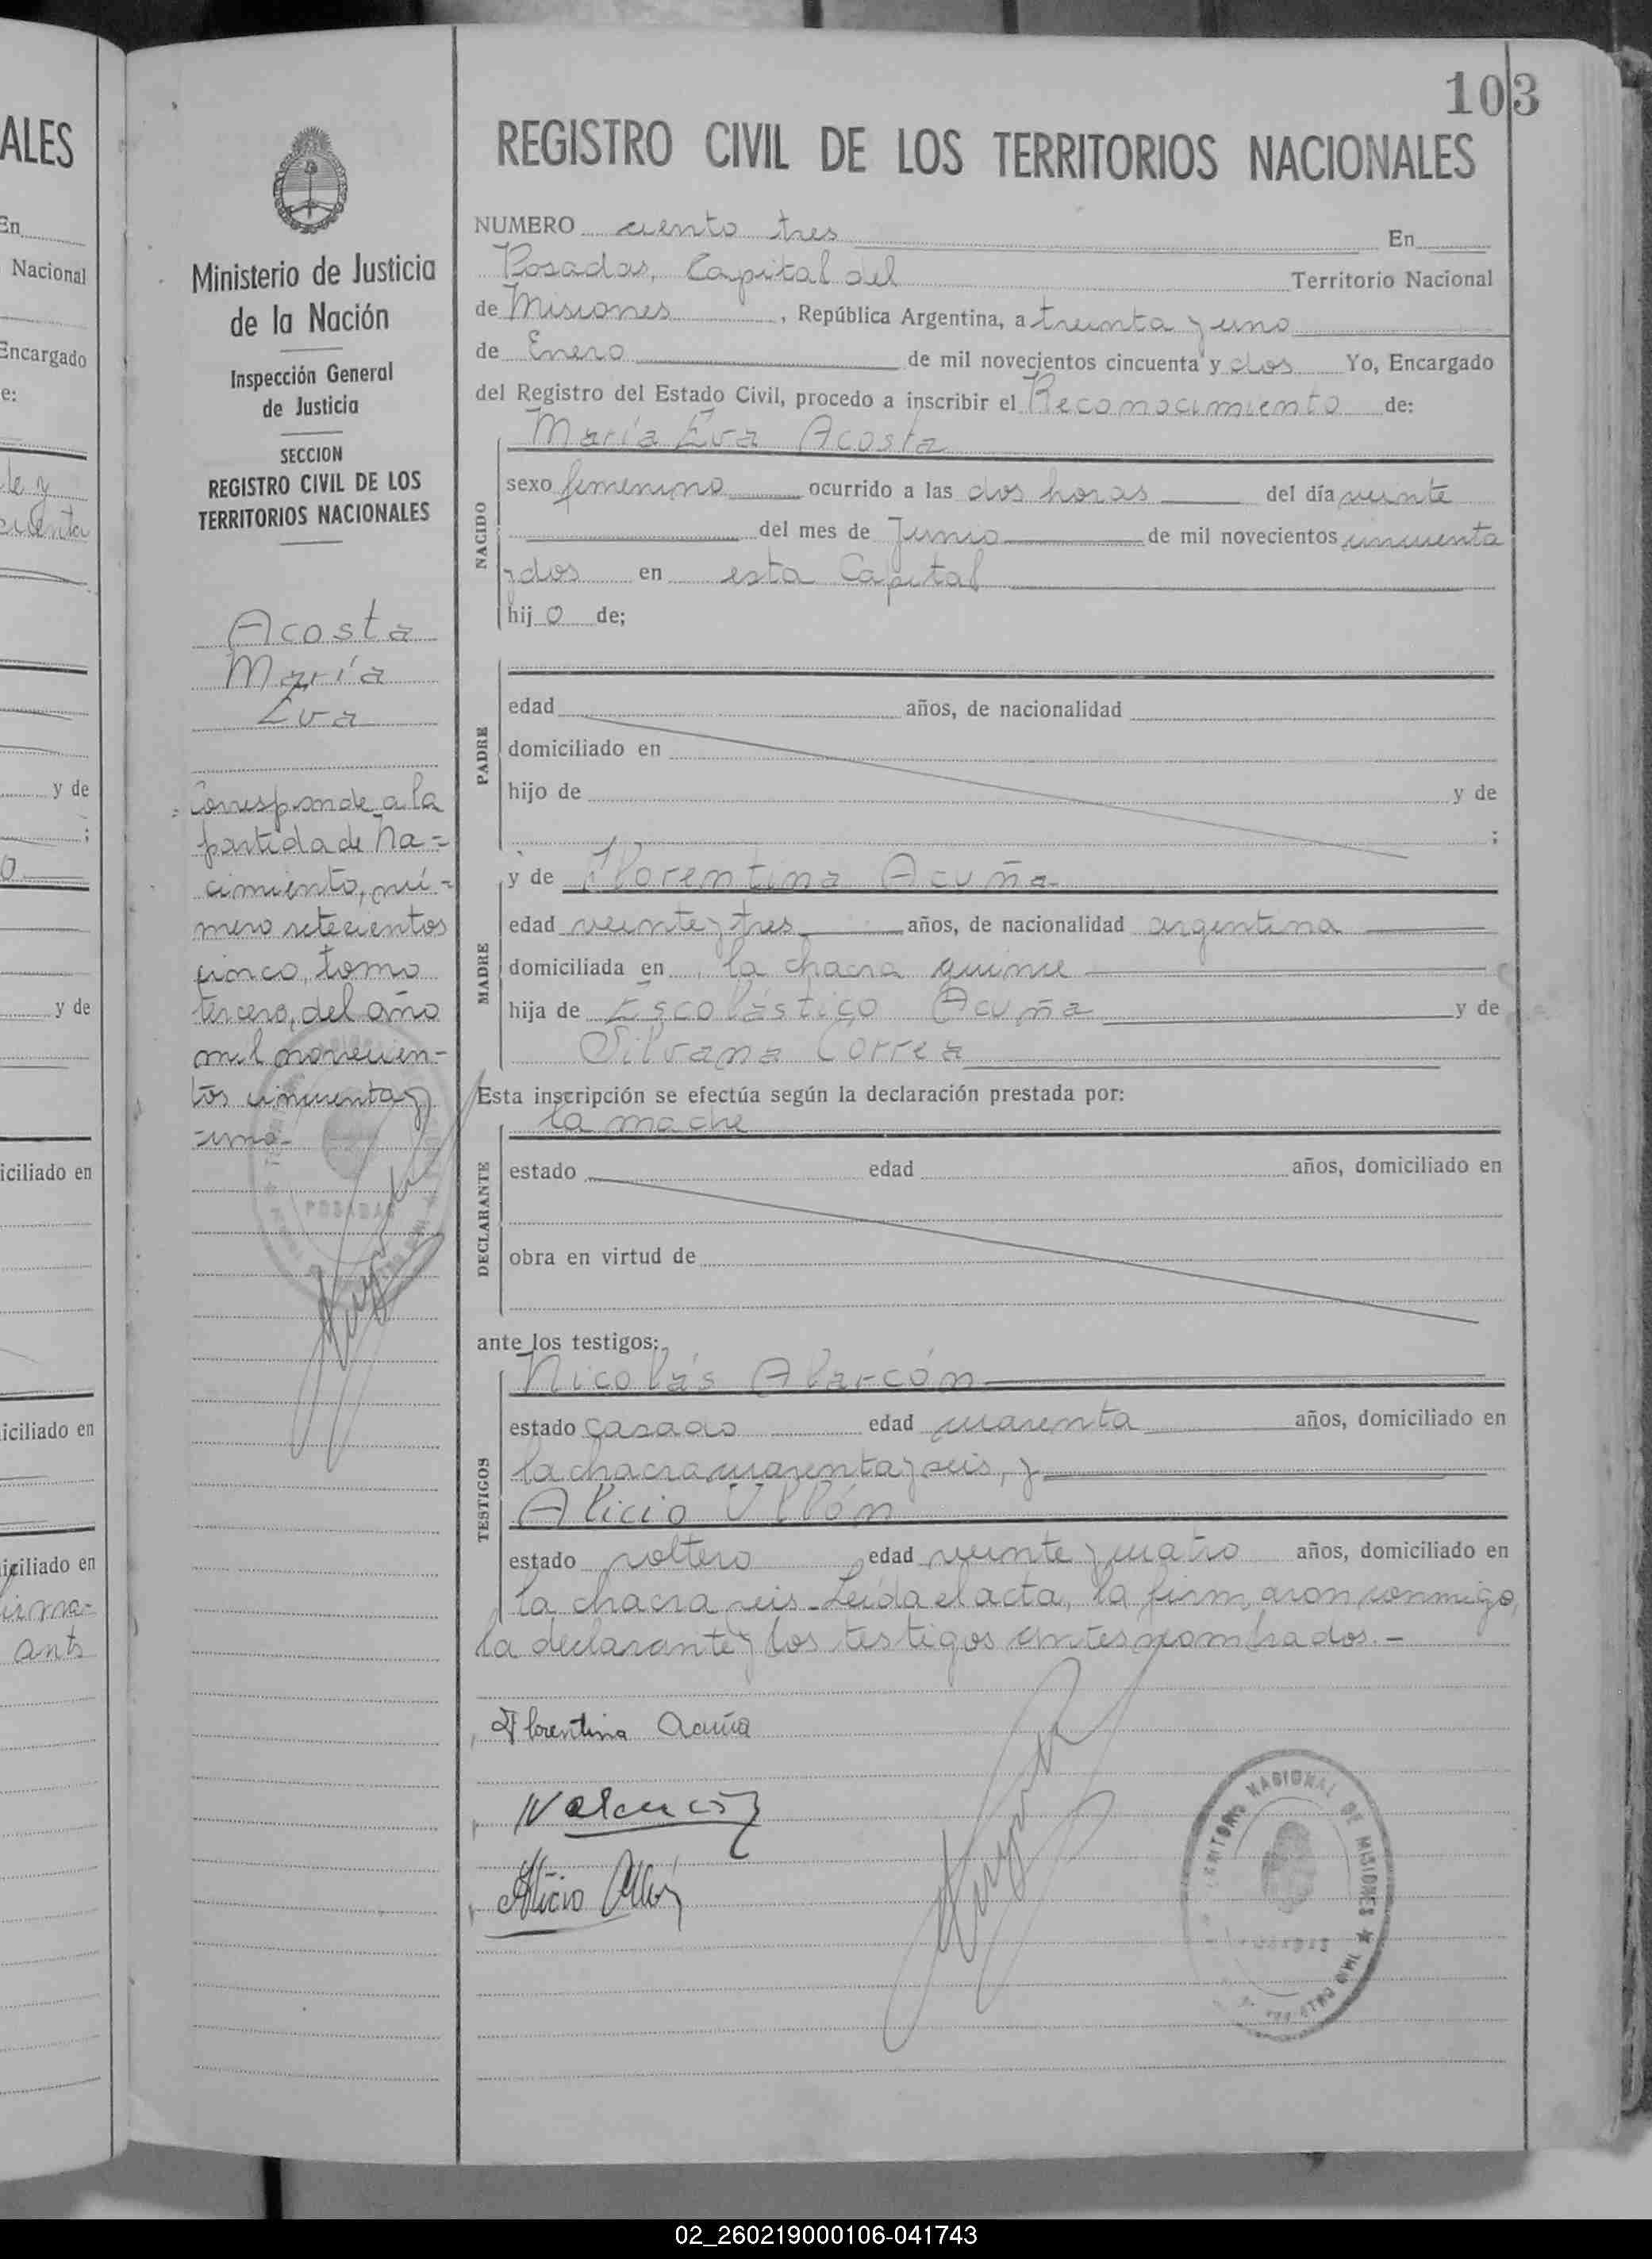 103
REGISTRO CIVIL DE LOS TERRITORIOS NACIONALES
NUMERO ciento tres En
Posadas, Capital del Territorio Nacional
de Misiones, República Argentina, a treinta y uno
de Enero de mil novecientos cincuenta y dos Yo, Encargado
del Registro del Estado Civil, procedo a inscribir el Reconocimiento de:
María Eva Acosta
NACIDO
sexo femenino ocurrido a las dos horas del día veinte
del mes de Junio de mil novecientos cincuenta
y dos en esta Capital
hij o de;
PADRE
edad años, de nacionalidad
domiciliado en
hijo de y de
;
MADRE
y de Florentina Acuña
edad veinte y tres años, de nacionalidad argentina
domiciliada en la chacra quince
hija de Escolástico Acuña y de
Silvana Correa
Esta inscripción se efectúa según la declaración prestada por:
la madre
DECLARANTE
estado edad años, domiciliado en
obra en virtud de
ante los testigos:
TESTIGOS
Nicolás Alarcón
estado casado edad cuarenta años, domiciliado en
la chacra cuarenta y seis, y
Alicio Ullón
estado soltero edad veinte y cuatro años, domiciliado en
la chacra seis. Leída el acta, la firmaron conmigo,
la declarante y los testigos antes nombrados. -
Florentina Acuña
N Alarcón
Alicio Ullón
TERRITORIO NACIONAL DE MISIONES ★ REGISTRO CIVIL
Ministerio de Justicia
de la Nación
Inspección General
de Justicia
SECCION
REGISTRO CIVIL DE LOS
TERRITORIOS NACIONALES
Acosta
María
Eva
Corresponde a la
partida de Na=
cimiento, nú-=
mero setecientos
cinco, tomo
tercero, del año
mil novecien-
tos cincuenta y
uno-
POSADAS
ALES
En
Nacional
Encargado
e:
te y
cuenta
y de
;
o
y de
iciliado en
iciliado en
iciliado en
firma-
ants
02_260219000106-041743